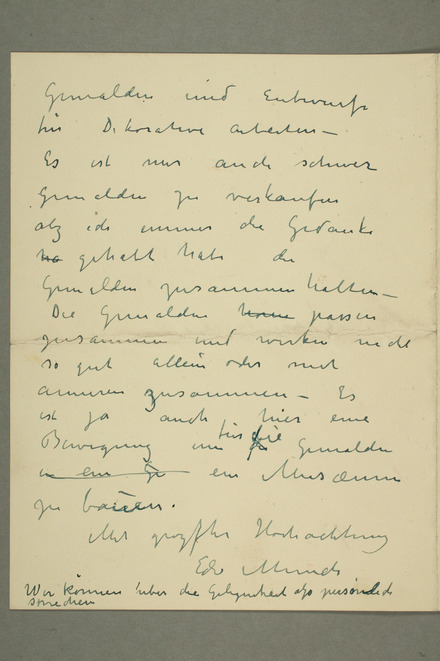 Gemälden und Entwurfe
für Dekorative arbeiten –
Es ist mir auch schwer
Gemälden zu verkaufen
als ich immer die Gedanke
gehabt habe die
Gemälden zusammenhalten –
Die Gemälden passen
zusammen und wirken nicht
so gut allein oder mit
anneren zusammen – Es
ist ja auch hier eine
Bewegung um für die Gemälden
ein Musæum
zu bauen.
Mit grösster Hochachtung
Edv Munch
Wir können über die Gelegenheit also persönlich
sprechen